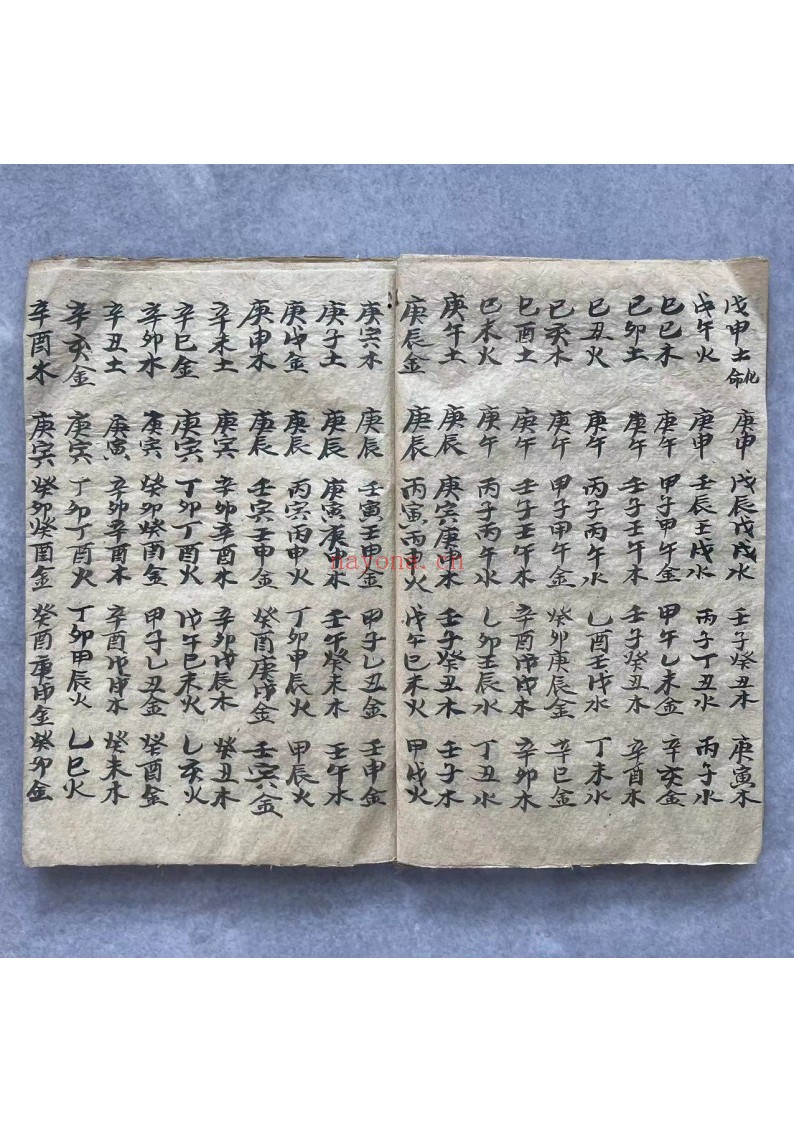 戊申土化命 庚申 戊辰戊戌水 壬子癸丑木 庚寅木
戊午火 庚申 壬辰壬戌水 丙子丁丑水 丙子水
己巳木 庚午 甲子甲午金 甲午乙未金 辛亥金
己卯土 庚午 壬子壬午木 壬子癸丑木 辛酉木
己丑火 庚午 丙子丙午水 乙酉壬戌水 丁未水
己亥木 庚午 甲子甲午金 癸卯庚辰金 辛巳金
己酉土 庚午 壬子壬午木 辛酉戊戌木 辛卯木
己未火 庚午 丙子丙午水 乙卯壬辰水 丁丑水
庚午土 庚辰 庚寅庚申木 壬子癸丑木 壬子木
庚辰金 庚辰 丙寅丙申火 戊午己未火 甲戌火
庚寅木 庚辰 壬寅壬申金 甲子乙丑金 壬申金
庚子土 庚辰 庚寅庚申木 壬午癸未木 壬午木
庚戌金 庚辰 丙寅丙申火 丁卯甲辰火 甲辰火
庚申木 庚辰 壬寅壬申金 癸酉庚戌金 壬寅金
辛未土 庚寅 辛卯辛酉木 辛卯戊辰木 癸丑木
辛巳金 庚寅 丁卯丁酉火 戊午己未火 乙亥火
辛卯水 庚寅 癸卯癸酉金 甲子乙丑金 癸酉金
辛丑土 庚寅 辛卯辛酉木 辛酉戊戌木 癸未木
辛亥金 庚寅 丁卯丁酉火 丁卯甲辰火 乙巳火
辛酉木 庚寅 癸卯癸酉金 癸酉庚戌金 癸卯金
nayona.cn